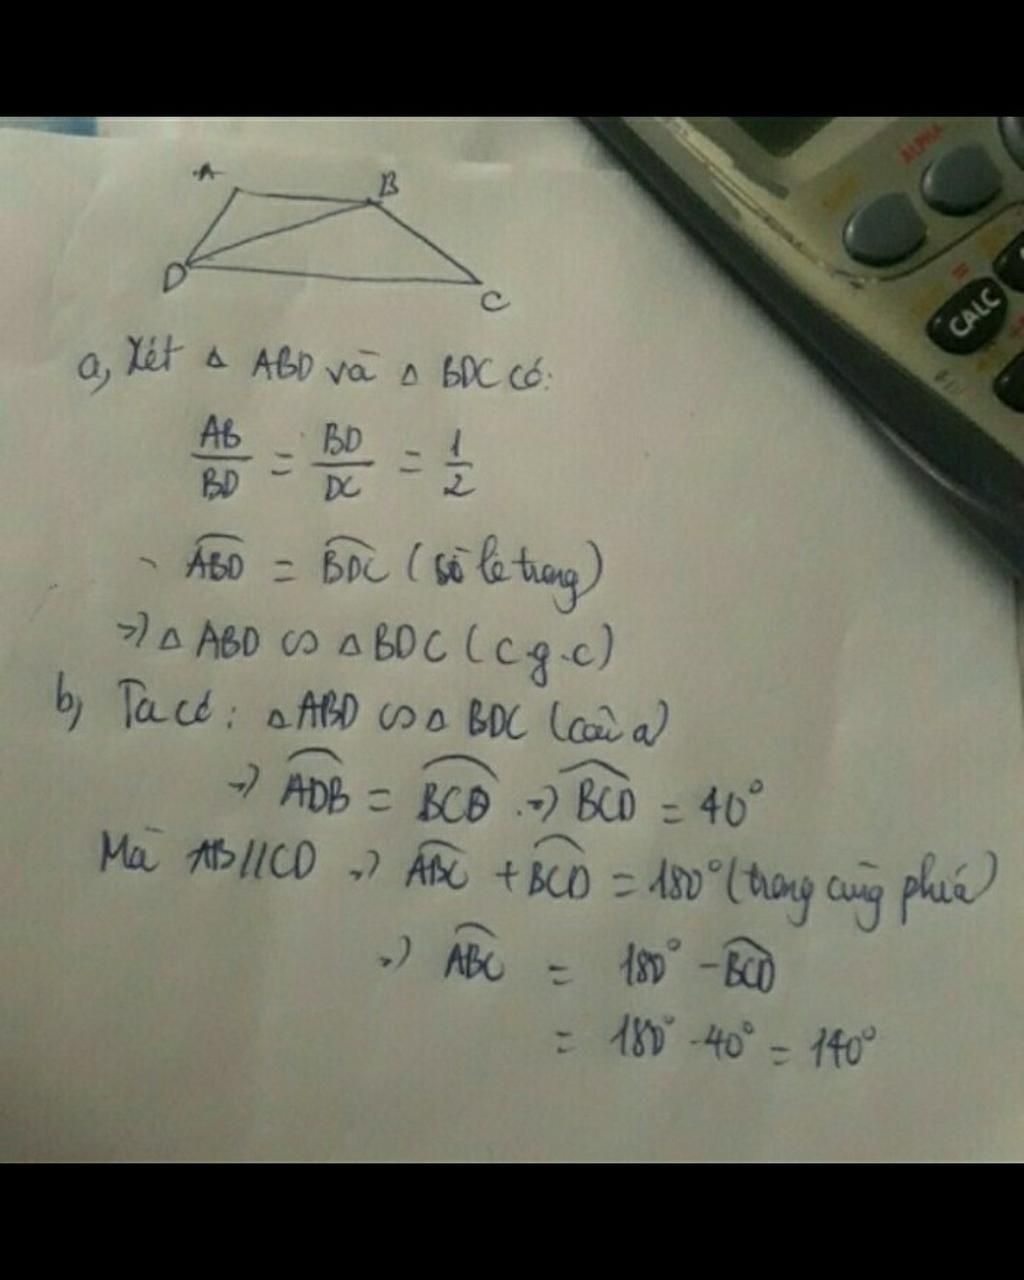 A
B
D
C
ALPHA
=
CALC
a, Xét △ ABD và △ BDC có:
AB/BD = BD/DC = 1/2
ABD = BDC (so le trong)
=> △ ABD ∽ △ BDC (c.g.c)
b, Ta có: △ ABD ∽ △ BDC (câu a)
=> ADB = BCD => BCD = 40°
Mà AB // CD => ABC + BCD = 180° (trong cùng phía)
=> ABC = 180° - BCD
= 180° - 40° = 140°